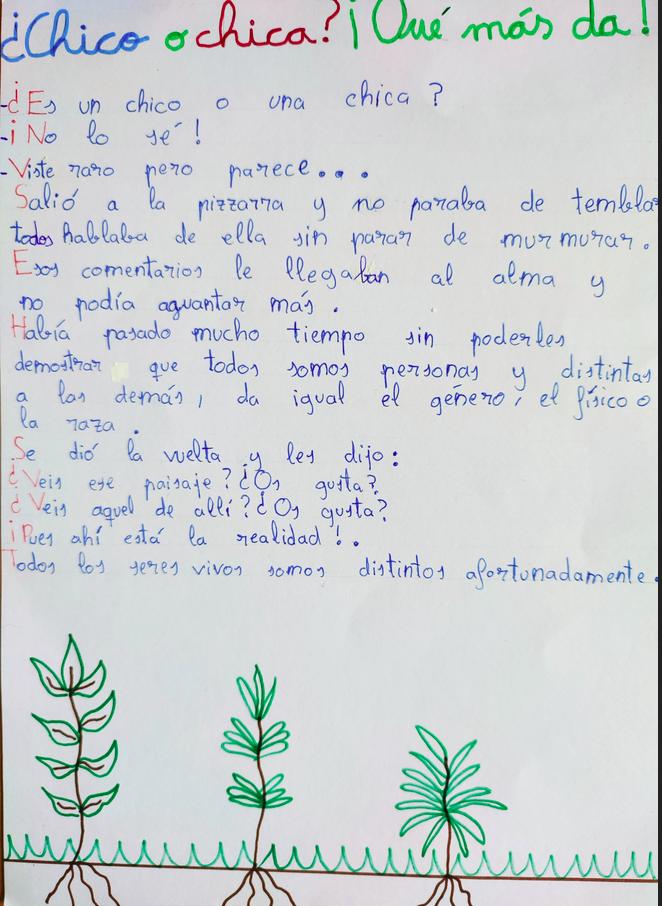 ¿Chico o chica? ¡Qué más da!
-¿Es un chico o una chica?
-¡No lo sé!
-Viste raro pero parece...
Salió a la pizzarra y no paraba de temblar
todos hablaba de ella sin parar de murmurar.
Esos comentarios le llegaban al alma y
no podía aguantar más.
Había pasado mucho tiempo sin poderles
demostrar que todos somos personas y distintas
a los demás, da igual el género, el físico o
la raza.
Se dió la vuelta y les dijo:
¿Veis ese paisaje? ¿Os gusta?
¿Veis aquel de allí? ¿Os gusta?
¡Pues ahí está la realidad!.
Todos los seres vivos somos distintos afortunadamente.